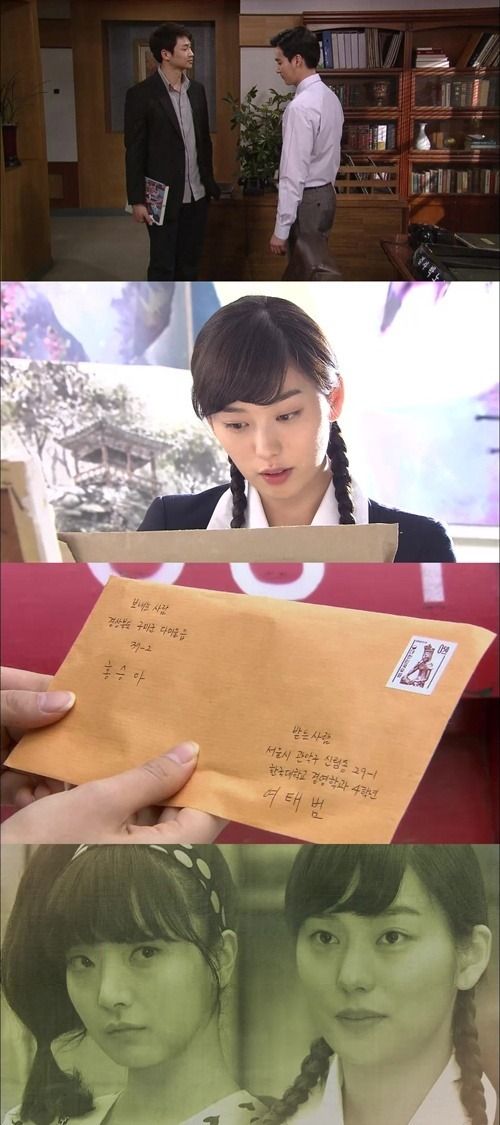 보내는 사람
경상북도 구미군
홍승아
받는 사람
서울시 관악구 신림동 29-1
한국대학교 경영학과 4학년
여태범